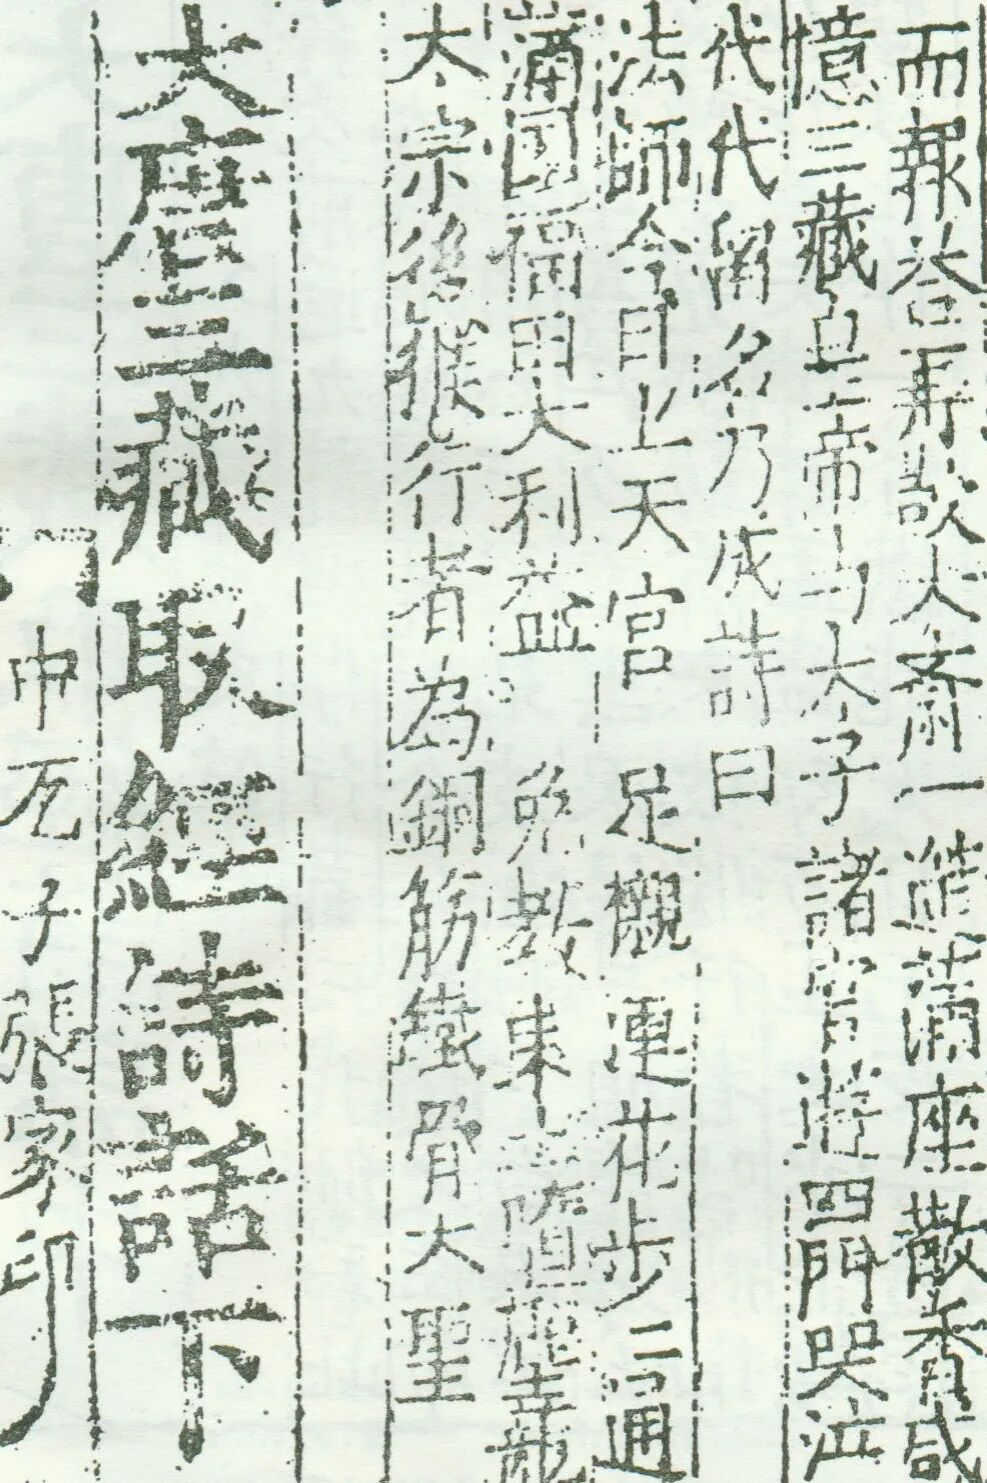 而報荅再設大齋一 筵滿座散香咸
憶三藏皇帝与太子 諸官遊四門哭泣
代代留名乃成詩曰
法師今日上天宮 足櫬蓮花步〻通
滿國福田大利益 免教東土墮塵籠
太宗後 猴行者為銅筋鐵骨大聖
大唐三藏取經詩話下
中瓦子張家印